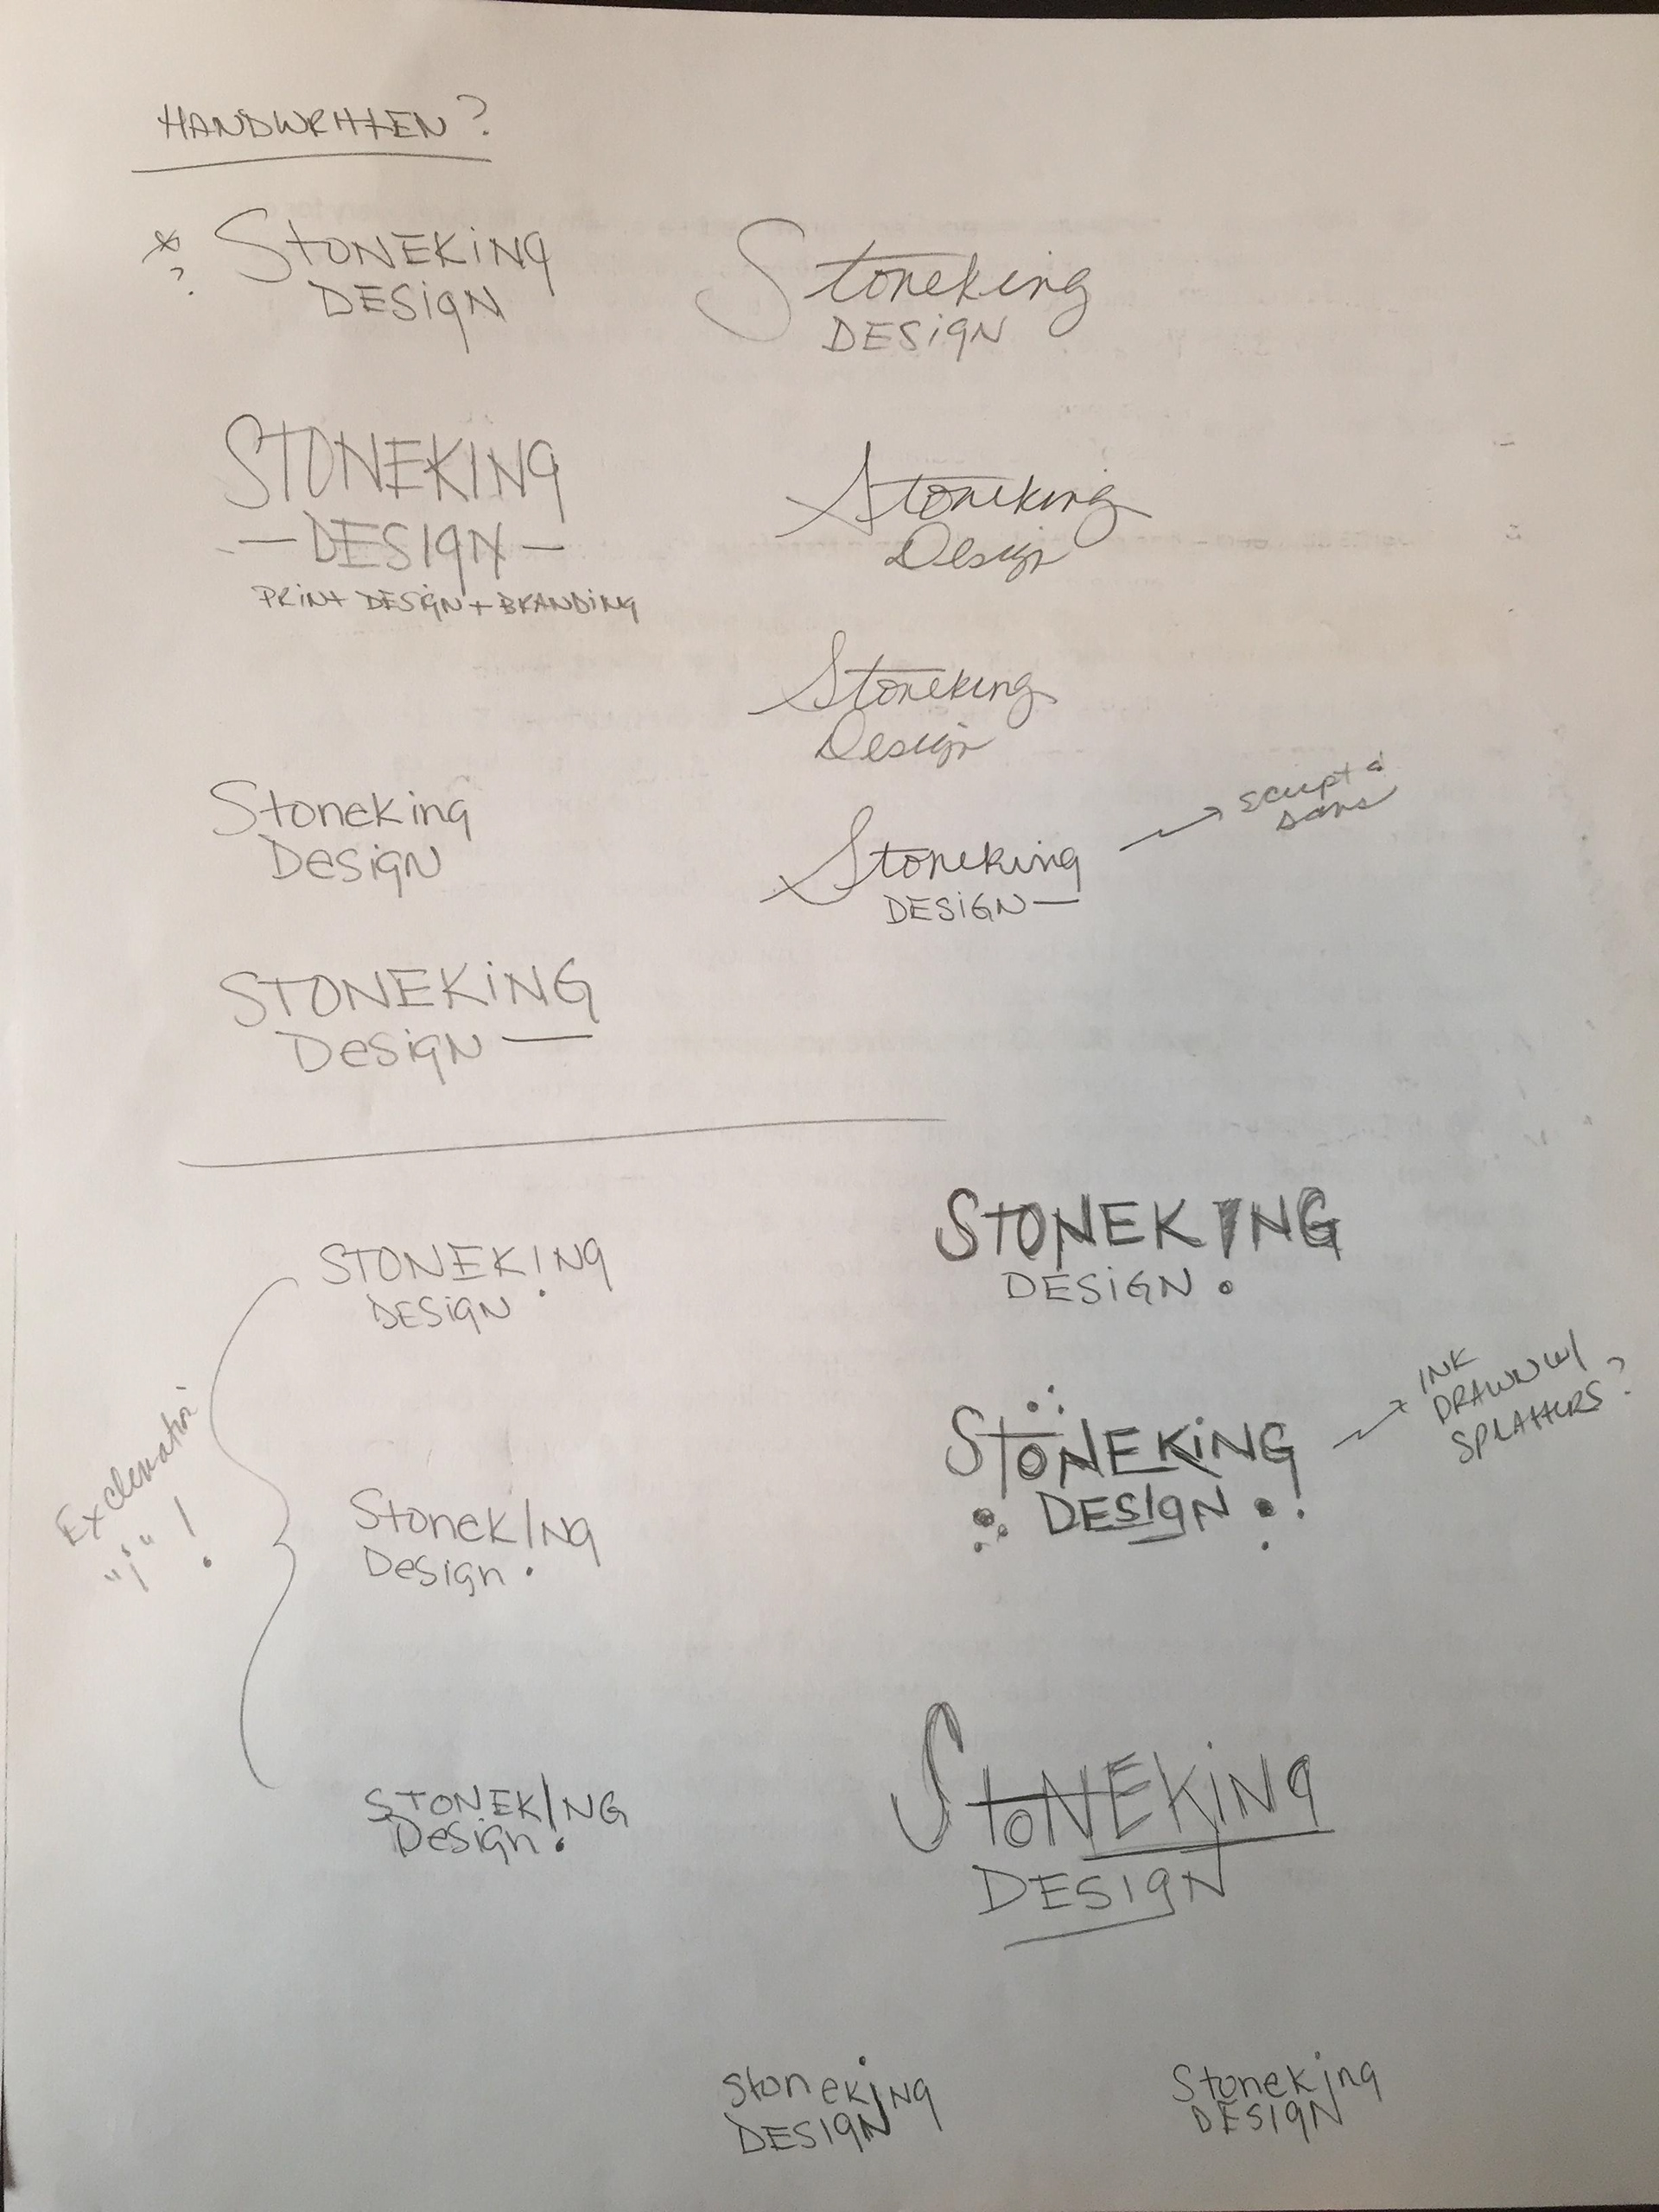 HANDWRITTEN?
*
?
STONEKiNg
DESigN
Stoneking
DESigN
STONEKINg
—DESIgN—
PRiNt DESigN + BRANDiNg
Stoneking
Design
Stoneking
Design
Stoneking
DesigN
Stoneking
DESiGN—
script &
sans
STONEKiNG
DesigN —
STONEK!Ng
DESigN
STONEK!NG
DESiGN
Exclamation
"i" !
STONEKiNG
DESIgN
INK
DRAWN w/
SPLATTERS?
StoneK!Ng
Design
STONEK!NG
Design
StoNEKiNg
DESIgN
StoneKiNg
DESIgN
StoneKing
DESIgN